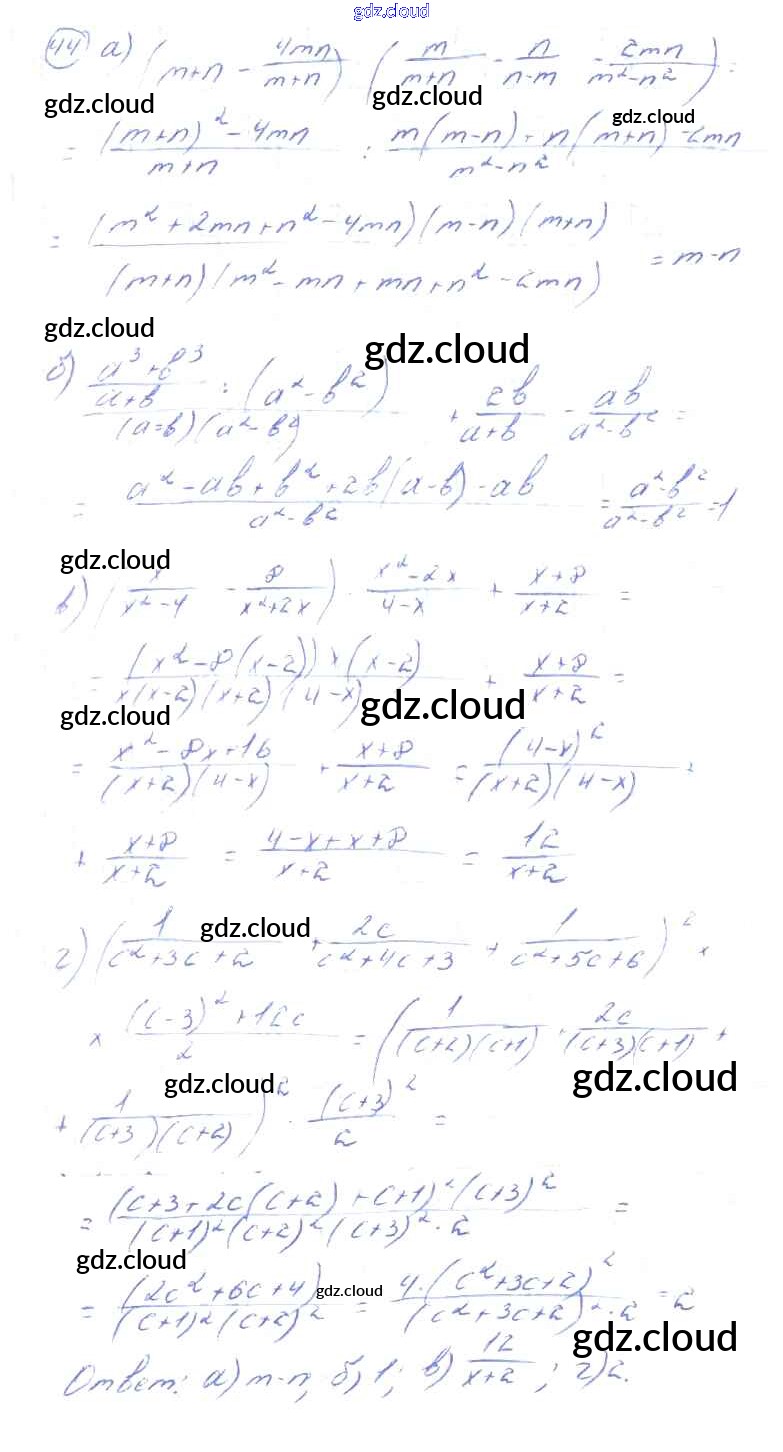 gdz.cloud
44 а) (m+n - 4mn/(m+n)) : (m/(m+n) - n/(n-m) - 2mn/(m²-n²)) =
gdz.cloud gdz.cloud gdz.cloud
= ((m+n)² - 4mn)/(m+n) : (m(m-n) + n(m+n) - 2mn)/(m²-n²)
= (m² + 2mn + n² - 4mn)(m-n)(m+n) / (m+n)(m² - mn + mn + n² - 2mn) = m-n
gdz.cloud gdz.cloud
б) (a³+b³)/(a+b) : (a²-b²) + 2b/(a+b) - ab/(a²-b²) =
= (a² - ab + b² + 2b(a-b) - ab)/(a²-b²) = (a²-b²)/(a²-b²) = 1
gdz.cloud
в) (x/(x²-4) - 8/(x²+2x)) · (x²-2x)/(4-x) + (x+8)/(x+2) =
= (x²-8(x-2))x(x-2) / x(x-2)(x+2)(4-x) + (x+8)/(x+2) =
gdz.cloud gdz.cloud
= (x²-8x+16)/((x+2)(4-x)) + (x+8)/(x+2) = (4-x)²/((x+2)(4-x)) +
+ (x+8)/(x+2) = (4-x+x+8)/(x+2) = 12/(x+2)
г) (1/(c²+3c+2) + 2c/(c²+4c+3) + 1/(c²+5c+6))² ×
gdz.cloud
× ((c-3)²+12c)/2 = (1/((c+2)(c+1)) + 2c/((c+3)(c+1)) +
gdz.cloud gdz.cloud
+ 1/((c+3)(c+2)))² · (c+3)²/2 =
= (c+3+2c(c+2)+c+1)²(c+3)² / (c+1)²(c+2)²(c+3)²·2 =
gdz.cloud gdz.cloud
= (2c²+6c+4)/((c+1)²(c+2)²) = 4·(c²+3c+2)²/((c²+3c+2)²·2) = 2
gdz.cloud
Ответ: а) m-n, б) 1; в) 12/(x+2); г) 2.